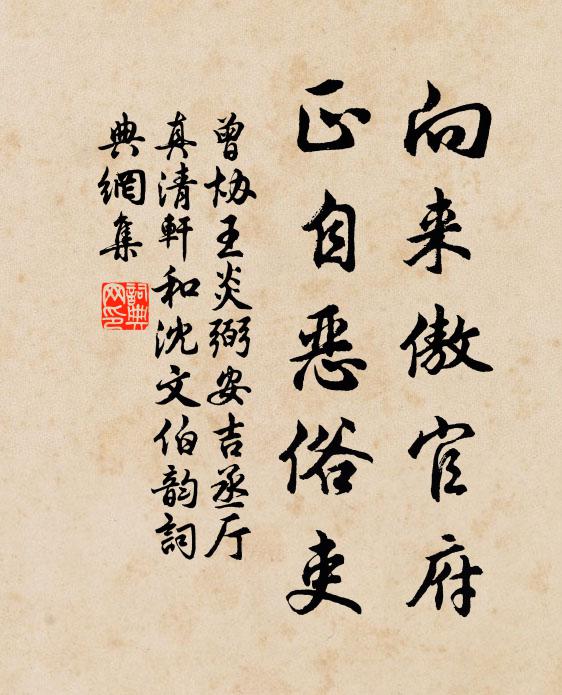 向来傲官府
正自恶俗吏
曾协王炎弼安吉丞厅
真清軒和沈文伯韵詞
典網集
詞典网印